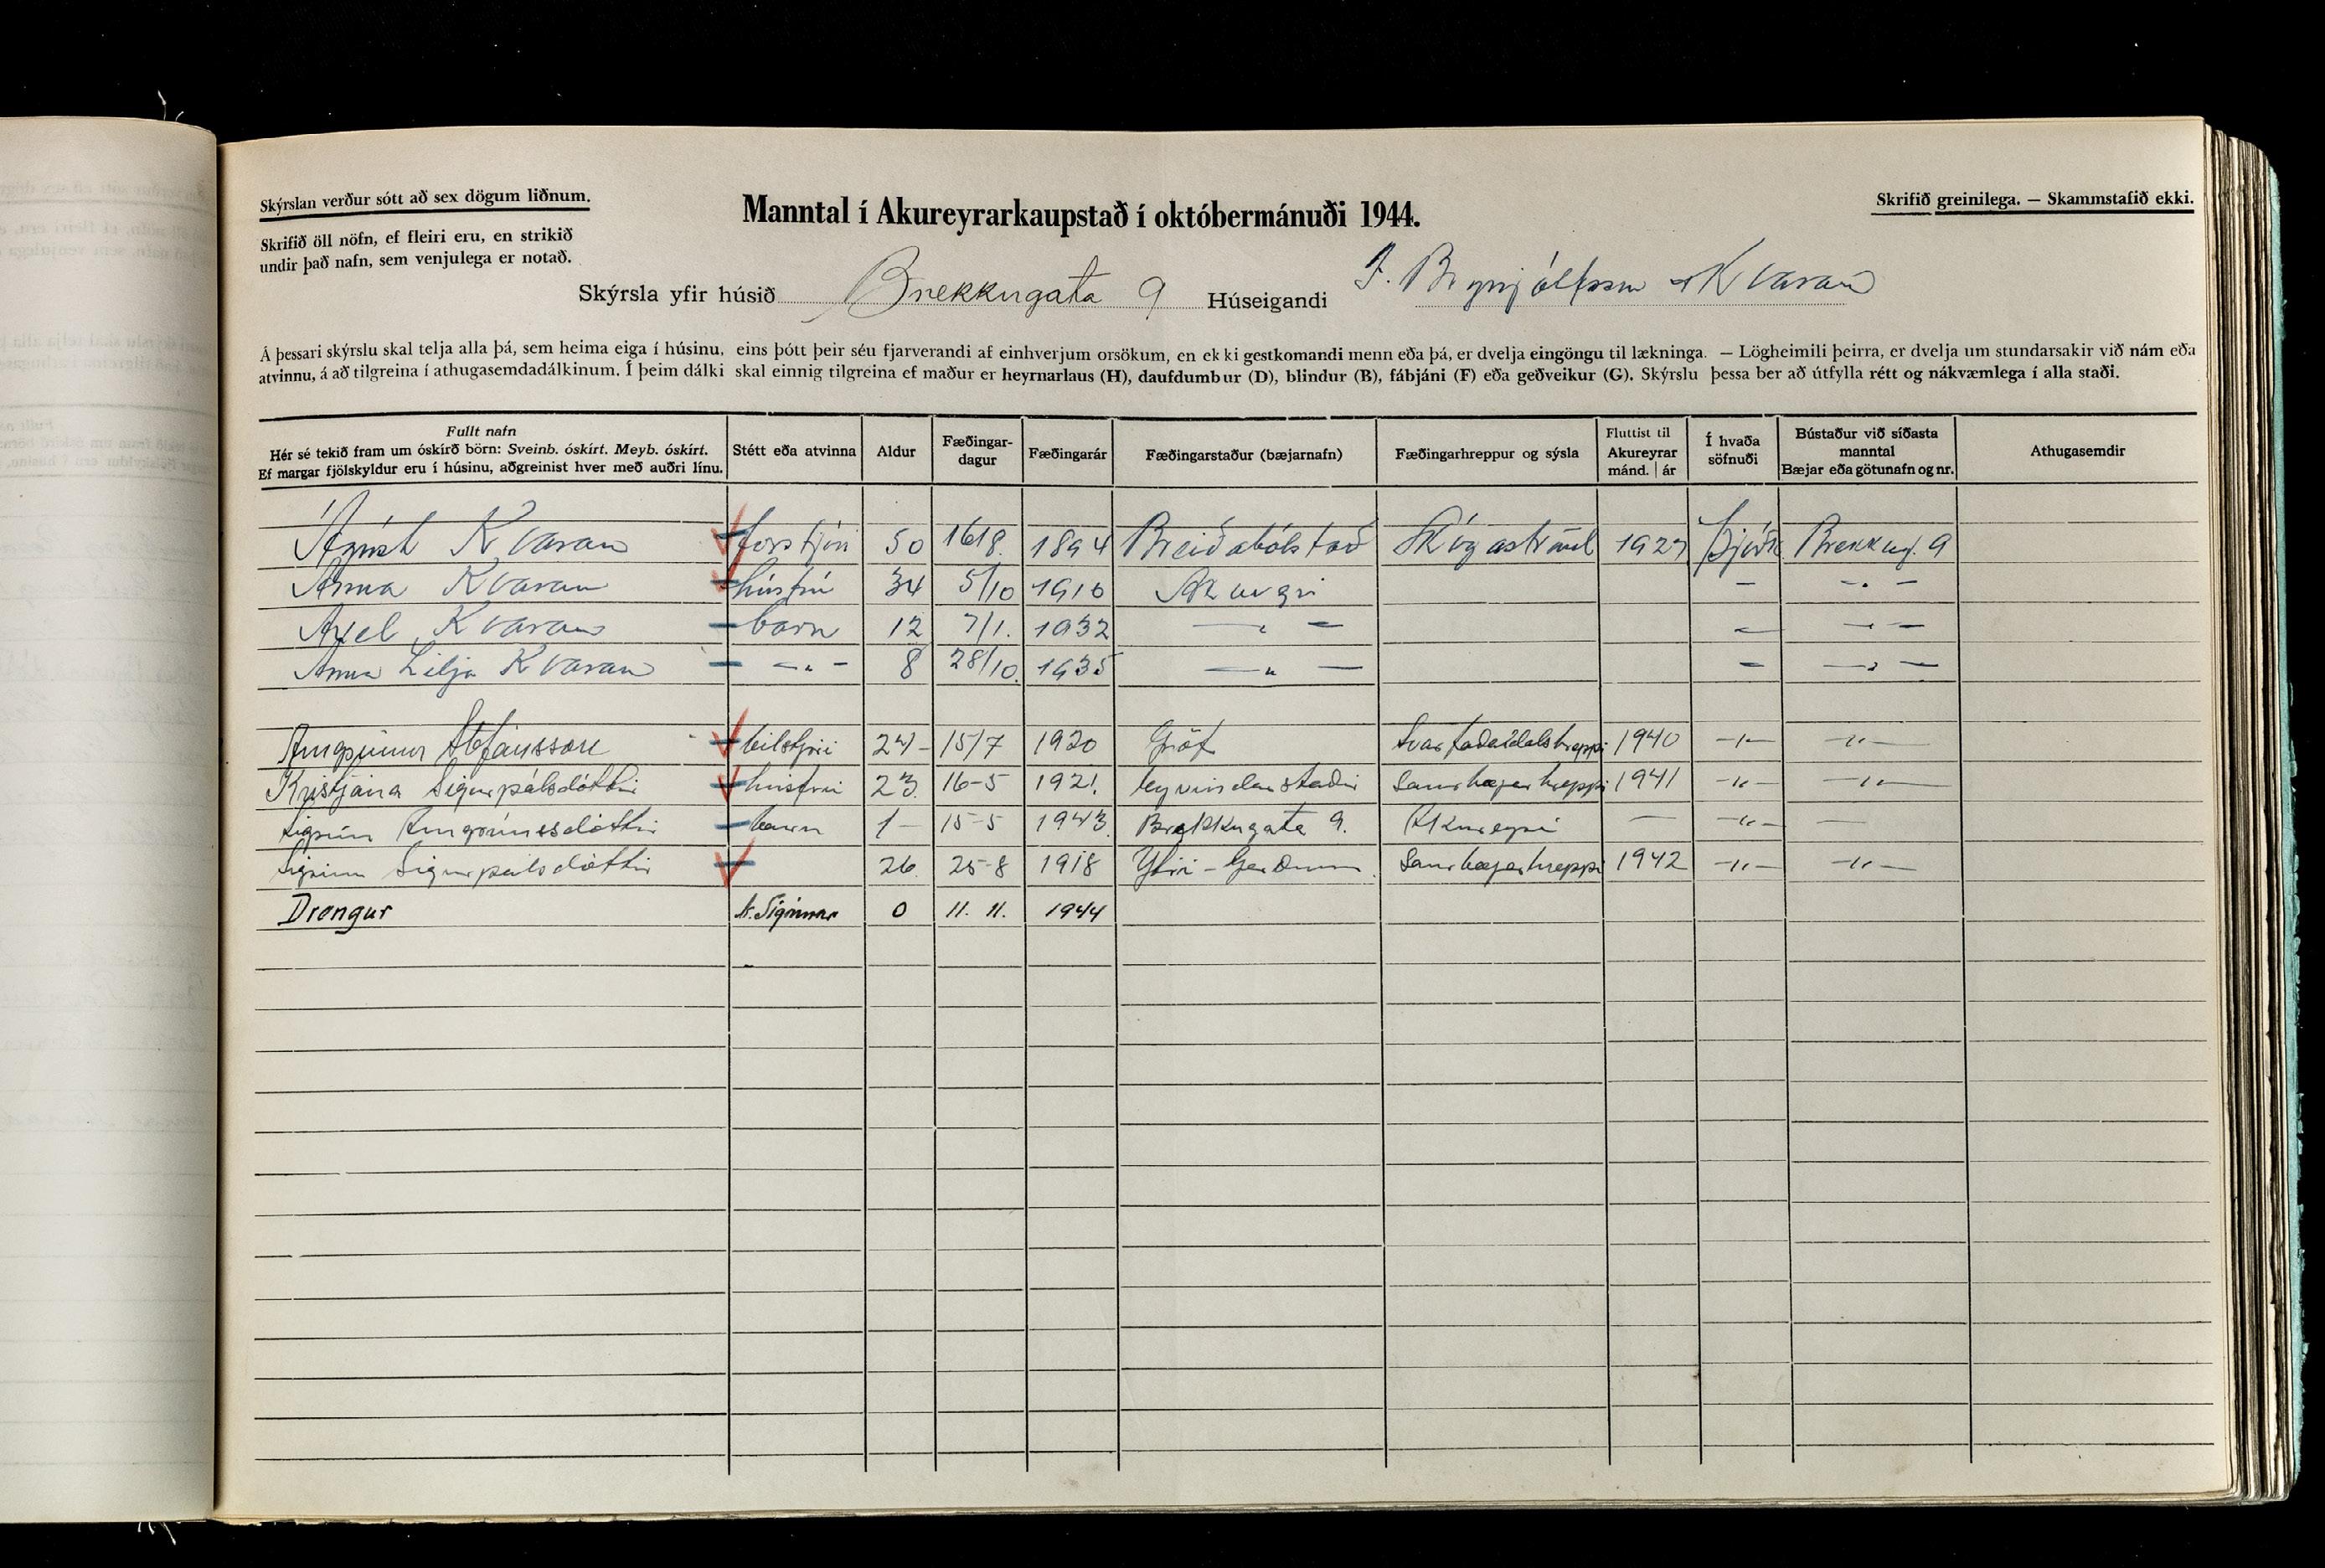 Skýrslan verður sótt að sex dögum liðnum.
Manntal í Akureyrarkaupstað í októbermánuði 1944.
Skrifið greinilega. — Skammstafið ekki.
Skrifið öll nöfn, ef fleiri eru, en strikið
undir það nafn, sem venjulega er notað.
Skýrsla yfir húsið Brekkugata 9 Húseigandi J. Brynjólfsson & Kvaran
Á þessari skýrslu skal telja alla þá, sem heima eiga í húsinu, eins þótt þeir séu fjarverandi af einhverjum orsökum, en ekki gestkomandi menn eða þá, er dvelja eingöngu til lækninga. — Lögheimili þeirra, er dvelja um stundarsakir við nám eða
atvinnu, á að tilgreina í athugasemdadálkinum. Í þeim dálki skal einnig tilgreina ef maður er heyrnarlaus (H), daufdumbur (D), blindur (B), fábjáni (F) eða geðveikur (G). Skýrslu þessa ber að útfylla rétt og nákvæmlega í alla staði.
Fullt nafn
Hér sé tekið fram um óskírð börn: Sveinb. óskírt. Meyb. óskírt.
Ef margar fjölskyldur eru í húsinu, aðgreinist hver með auðri línu.
Stétt eða atvinna
Aldur
Fæðingar-
dagur
Fæðingarár
Fæðingarstaður (bæjarnafn)
Fæðingarhreppur og sýsla
Fluttist til
Akureyrar
mánd. | ár
Í hvaða
söfnuði
Bústaður við síðasta
manntal
Bæjar eða götunafn og nr.
Athugasemdir
Ágúst Kvaran forstjóri 50 16/8. 1894 Breiðabólstað Skógaströnd 1927 Þjóðk Brekkug. 9
Anna Kvaran húsfrú 34 5/10 1910 Akureyri — —„—
Axel Kvaran barn 12 7/1. 1932 —„— — —„—
Anna Lilja Kvaran —„— 8 28/10. 1935 —„— — —„—
Arngrímur Stefánsson bílstjóri 24 - 15/7 1920 Gröf Svarfaðardalshreppi 1940 —„— —„—
Kristjana Sigurpálsdóttir húsfrú 23. 16-5 1921. Eyvindarstaðir Saurbæjarhreppi 1941 —„— —„—
Sigrún Arngrímsdóttir barn 1 — 15-5 1943. Brekkugata 9. Akureyri — —„— —
Sigrún Sigurpálsdóttir 26. 25-8 1918 Ytri-Gerðum. Saurbæjarhreppi 1942 —„— —„—
Drengur s. Sigrúnar 0 11. 11. 1944